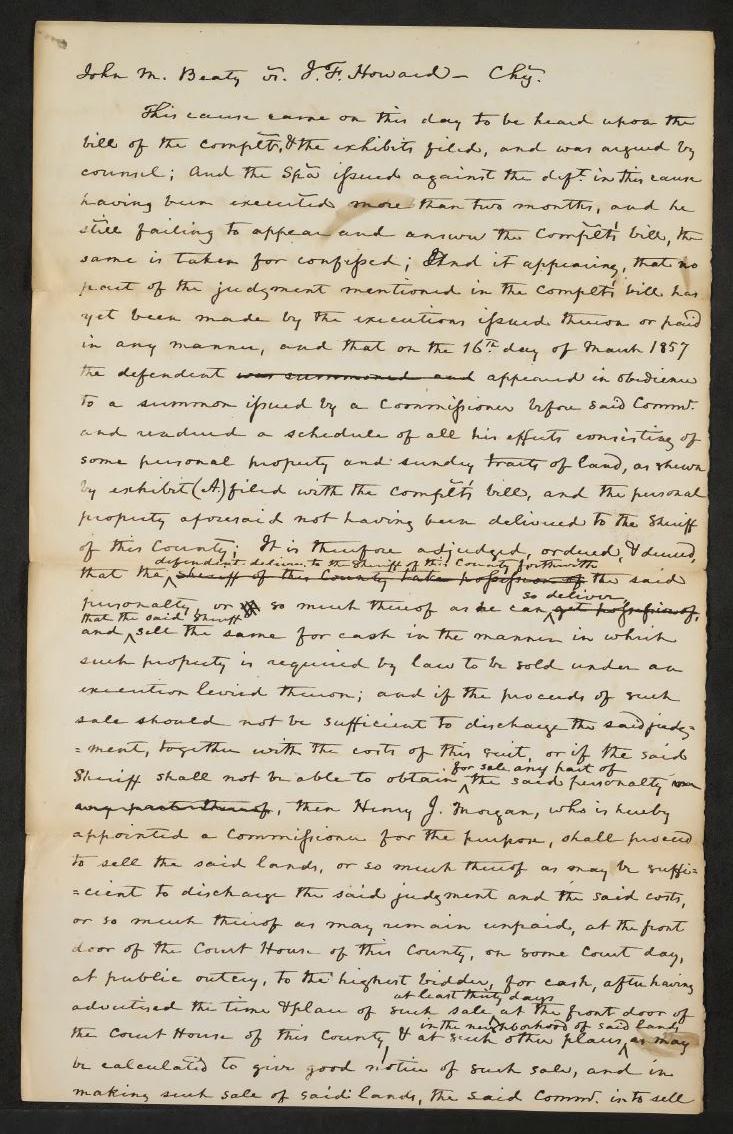 John M. Beaty vs. J. F. Howard – Chy.
This cause came on this day to be heard upon the
bill of the complts, & the exhibits filed, and was argued by
counsel; And the Spa issued against the deft. in this cause
having been executed more than two months, and he
still failing to appear and answer the Complts bill, the
same is taken for confessed; And it appearing, that no
part of the judgment mentioned in the complts bill has
yet been made by the executions issued thereon or paid
in any manner, and that on the 16th day of March 1857
the defendent was summoned and appeared in obedience
to a summon issued by a Commissioner before said Commr.
and rendered a schedule of all his effects consisting of
some personal property and sundry tracts of land, as shewn
by exhibit (A.) filed with the complts bill, and the personal
property aforesaid not having been delivered to the Sheriff
of this County; It is therefore adjudged, ordered, & decreed,
defendent deliver to the Sheriff of this County forthwith
that the sheriff of this County take possession of the said
so deliver
personalty, or so much thereof as he can get possession of,
that the said Sheriff
and sell the same for cash in the manner in which
such property is required by law to be sold under an
execution levied thereon; and if the proceeds of such
sale should not be sufficient to discharge the said judg=
=ment, together with the costs of this suit, or if the said
for sale any part of
Sheriff shall not be able to obtain the said personalty
any part thereof, then Henry J. Morgan, who is hereby
appointed a Commissioner for the purpose, shall proceed
to sell the said lands, or so much thereof as may be suffi=
=cient to discharge the said judgment and the said costs,
or so much thereof as may remain unpaid, at the front
door of the Court House of this County, on some Court day,
at public outcry, to the highest bidder, for cash, after having
at least thirty days
advertised the time & place of such sale at the front door of
in the neighborhood of said lands
the Court House of this County & at such other places, as may
be calculated to give good notice of such sale, and in
making such sale of said lands, the said Commr. is to sell